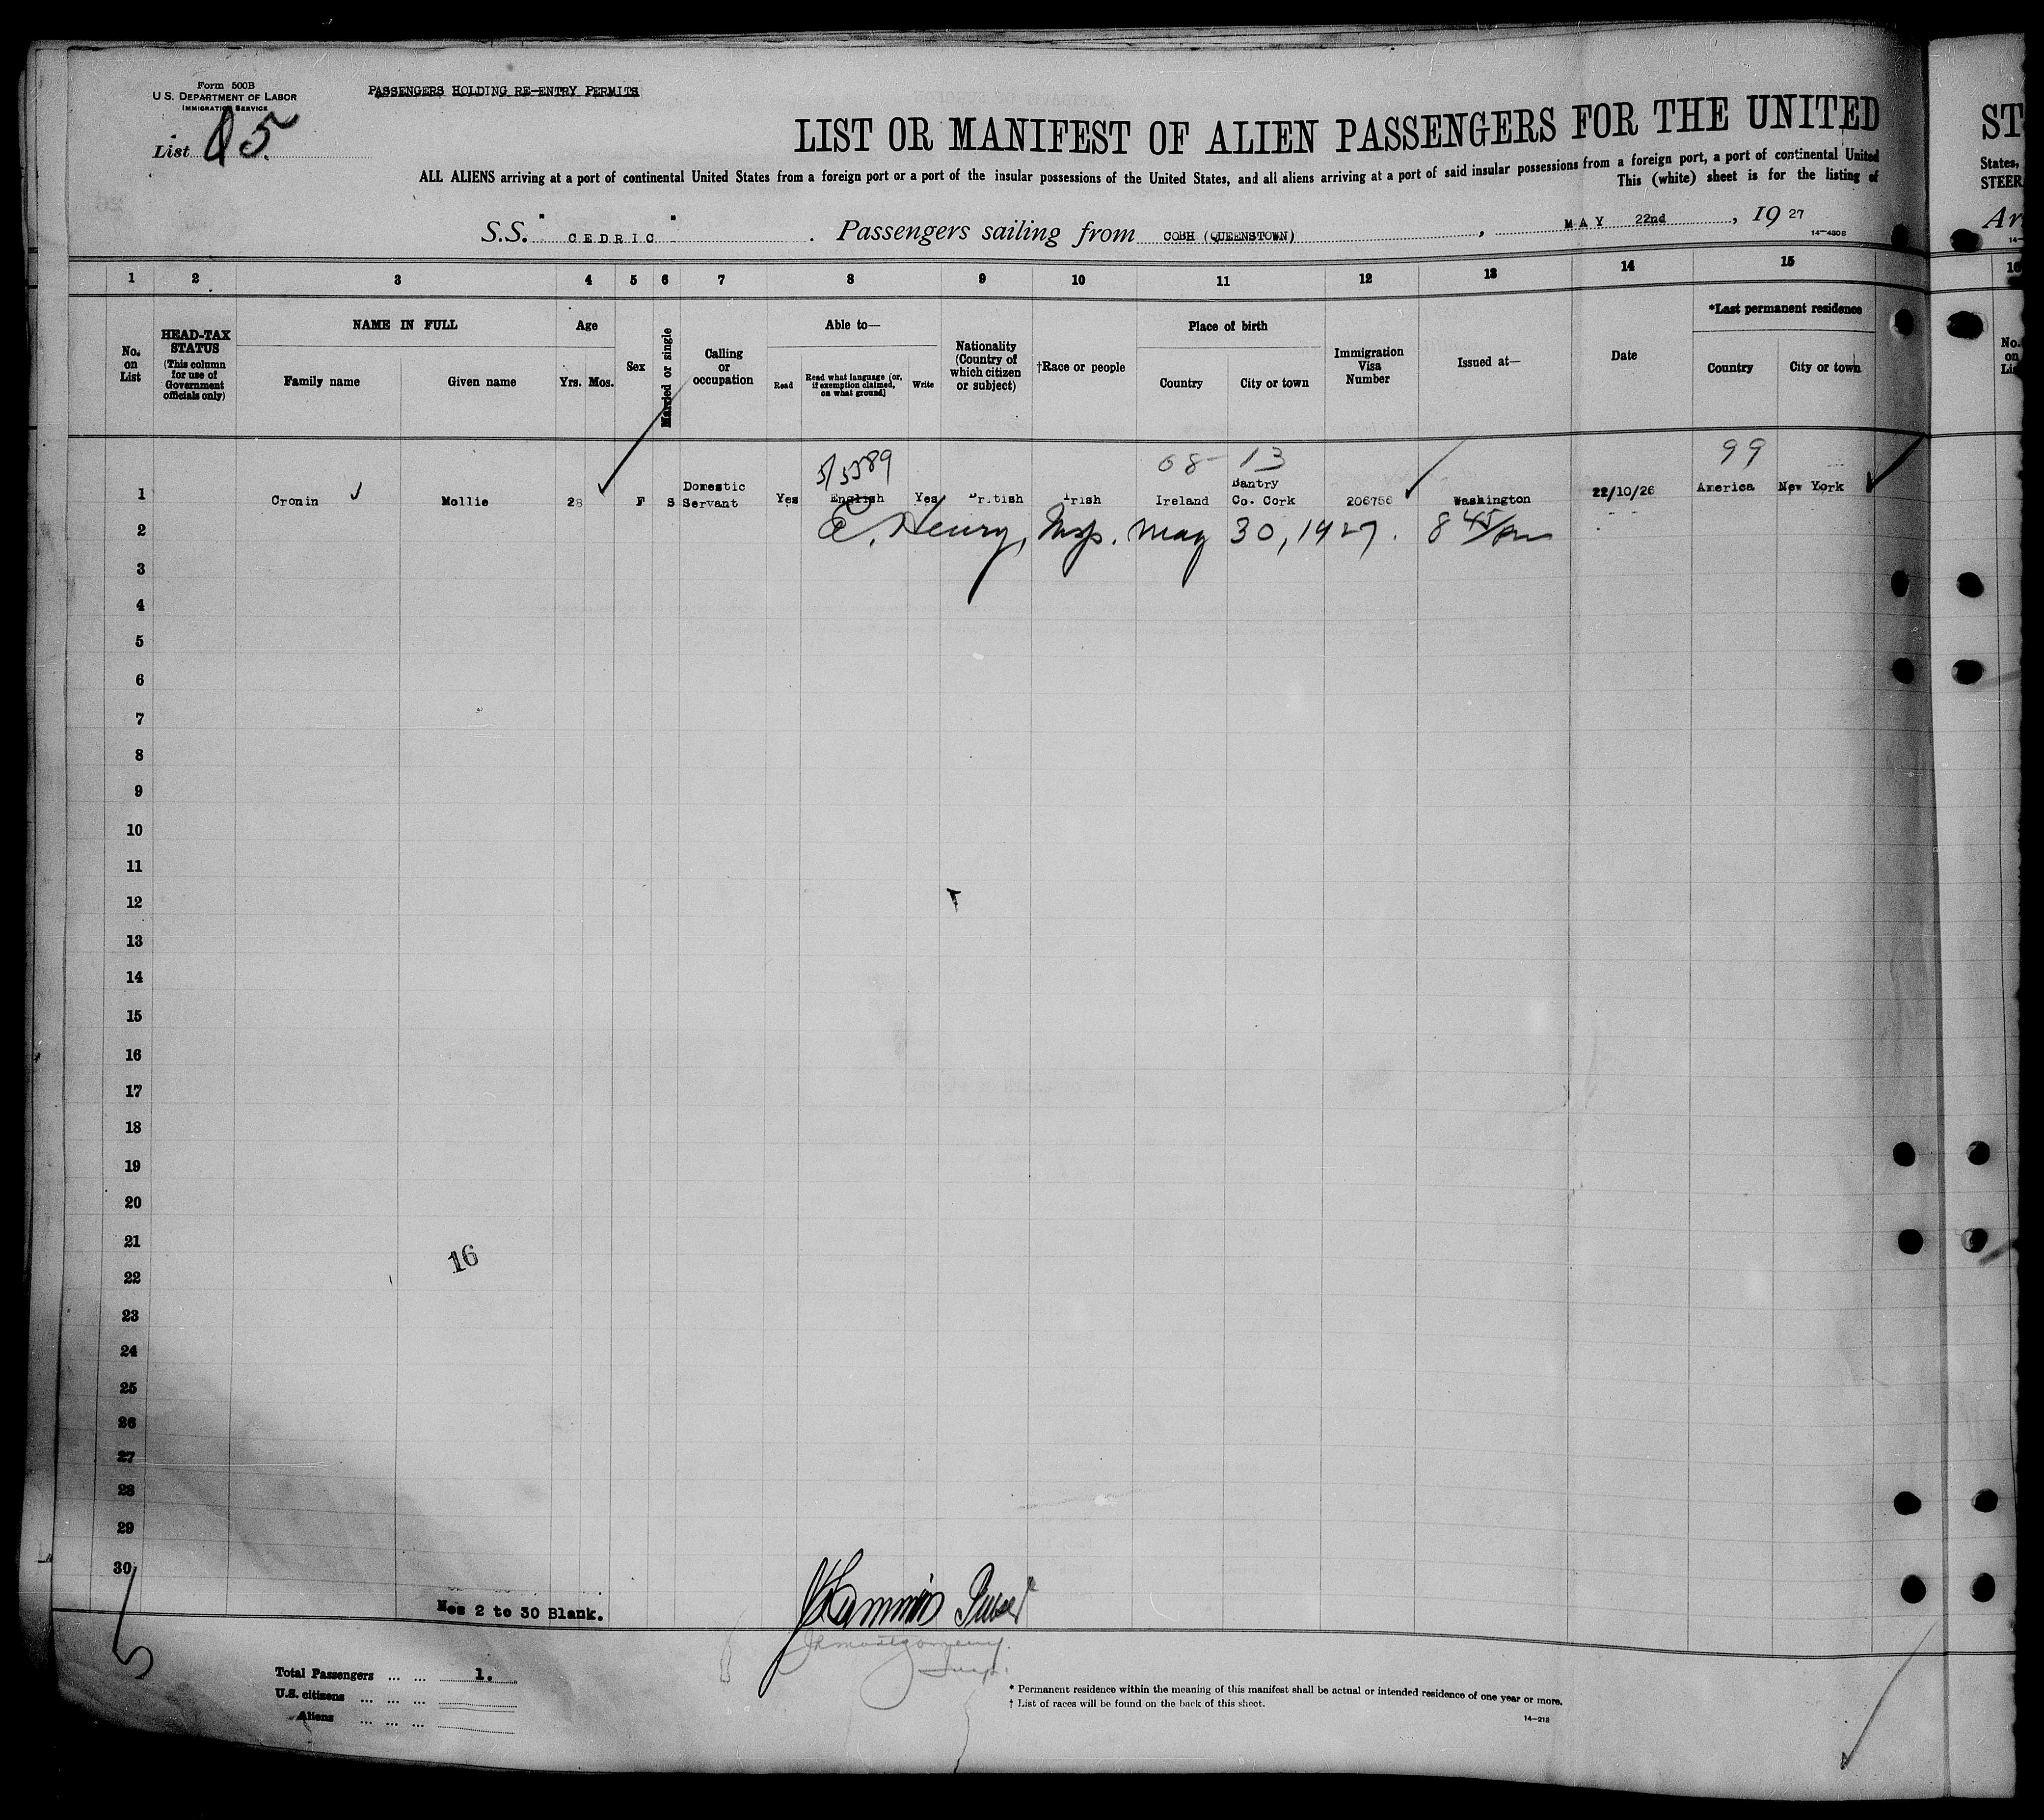 Form 500B
U.S. DEPARTMENT OF LABOR
IMMIGRATION SERVICE
PASSENGERS HOLDING RE-ENTRY PERMITS
List 5
LIST OR MANIFEST OF ALIEN PASSENGERS FOR THE UNITED
ST
ALL ALIENS arriving at a port of continental United States from a foreign port or a part of the insular possessions of the United States, and all aliens arriving at a port of said insular possessions from a foreign port, a port of continental United
States,
This (white) sheet is for the listing of
STEER
S.S. "CEDRIC" . Passengers sailing from COBH (QUEENSTOWN) , MAY 22nd , 19 27
Ar
14-480B
1 2 3 4 5 6 7 8 9 10 11 12 13 14 15
No. on List
HEAD-TAX STATUS (This column for use of Government officials only)
NAME IN FULL
Family name
Given name
Age
Yrs. Mos.
Sex
Married or single
Calling or occupation
Able to—
Read
Read what language [or, if exemption claimed, on what ground]
Write
Nationality (Country of which citizen or subject)
†Race or people
Place of birth
Country
City or town
Immigration Visa Number
Issued at—
Date
*Last permanent residence
Country
City or town
13
99
1 Cronin Mollie 28 F S Domestic Servant Yes English Yes British Irish Ireland Bantry Co. Cork 206756 Washington 22/10/26 America New York
2 E. Henry, Insp. May 30, 1927. 8 45/pm
3
4
5
6
7
8
9
10
11
12
13
14
15
16
17
18
19
20
21
16
22
23
24
25
26
27
28
29
30
Nos 2 to 30 Blank.
Purser
Insp.
Total Passengers ... ... 1.
U.S. citizens ... ... ...
Aliens ... ... ...
* Permanent residence within the meaning of this manifest shall be actual or intended residence of one year or more.
† List of races will be found on the back of this sheet.
14-218